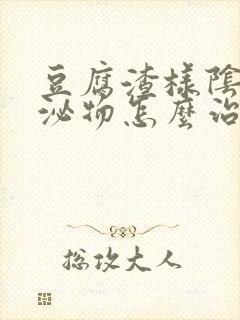 豆腐渣樣陰
泌物怎麼治
總攻大人